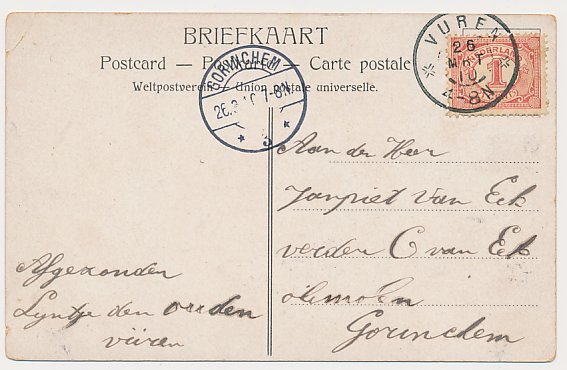 BRIEFKAART
Postcard — Postkarte — Carte postale
Weltpostverein — Union postale universelle.
GORINCHEM
26.3.10 7-8N
3
VUREN
26
MRT
10
4-8N
NEDERLAND
1
Aan der Heer
Janpiet Van Eck
verden C van Eck
oliemolen
Gorinchem
Afgezonden
Lyntje den
vüren